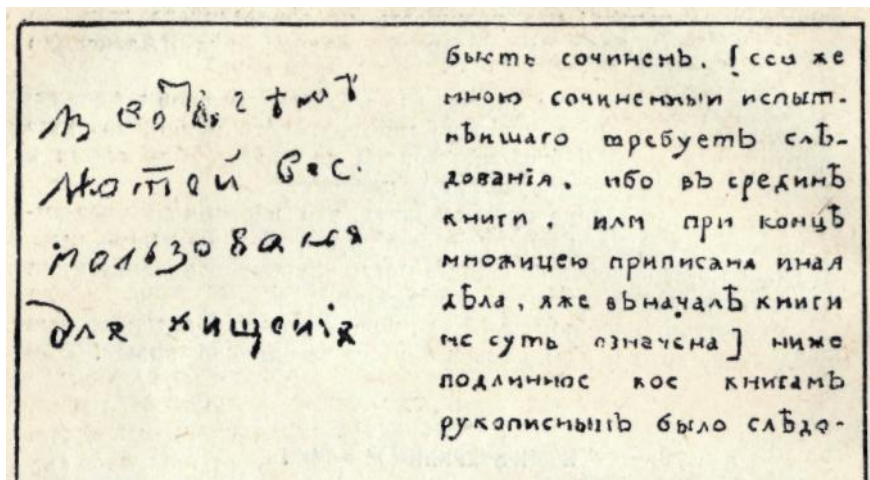 пользования
для хищенія
бысть сочиненъ. [сеи же
мною сочиненныи испыт-
нѣишаго требуетъ слѣ-
дованія, ибо въ срединѣ
книги, или при концѣ
множицею приписана иная
дѣла, яже въначалѣ книги
не суть означена] ниже
подлинное кое книгамъ
рукописнымъ было слѣдо-